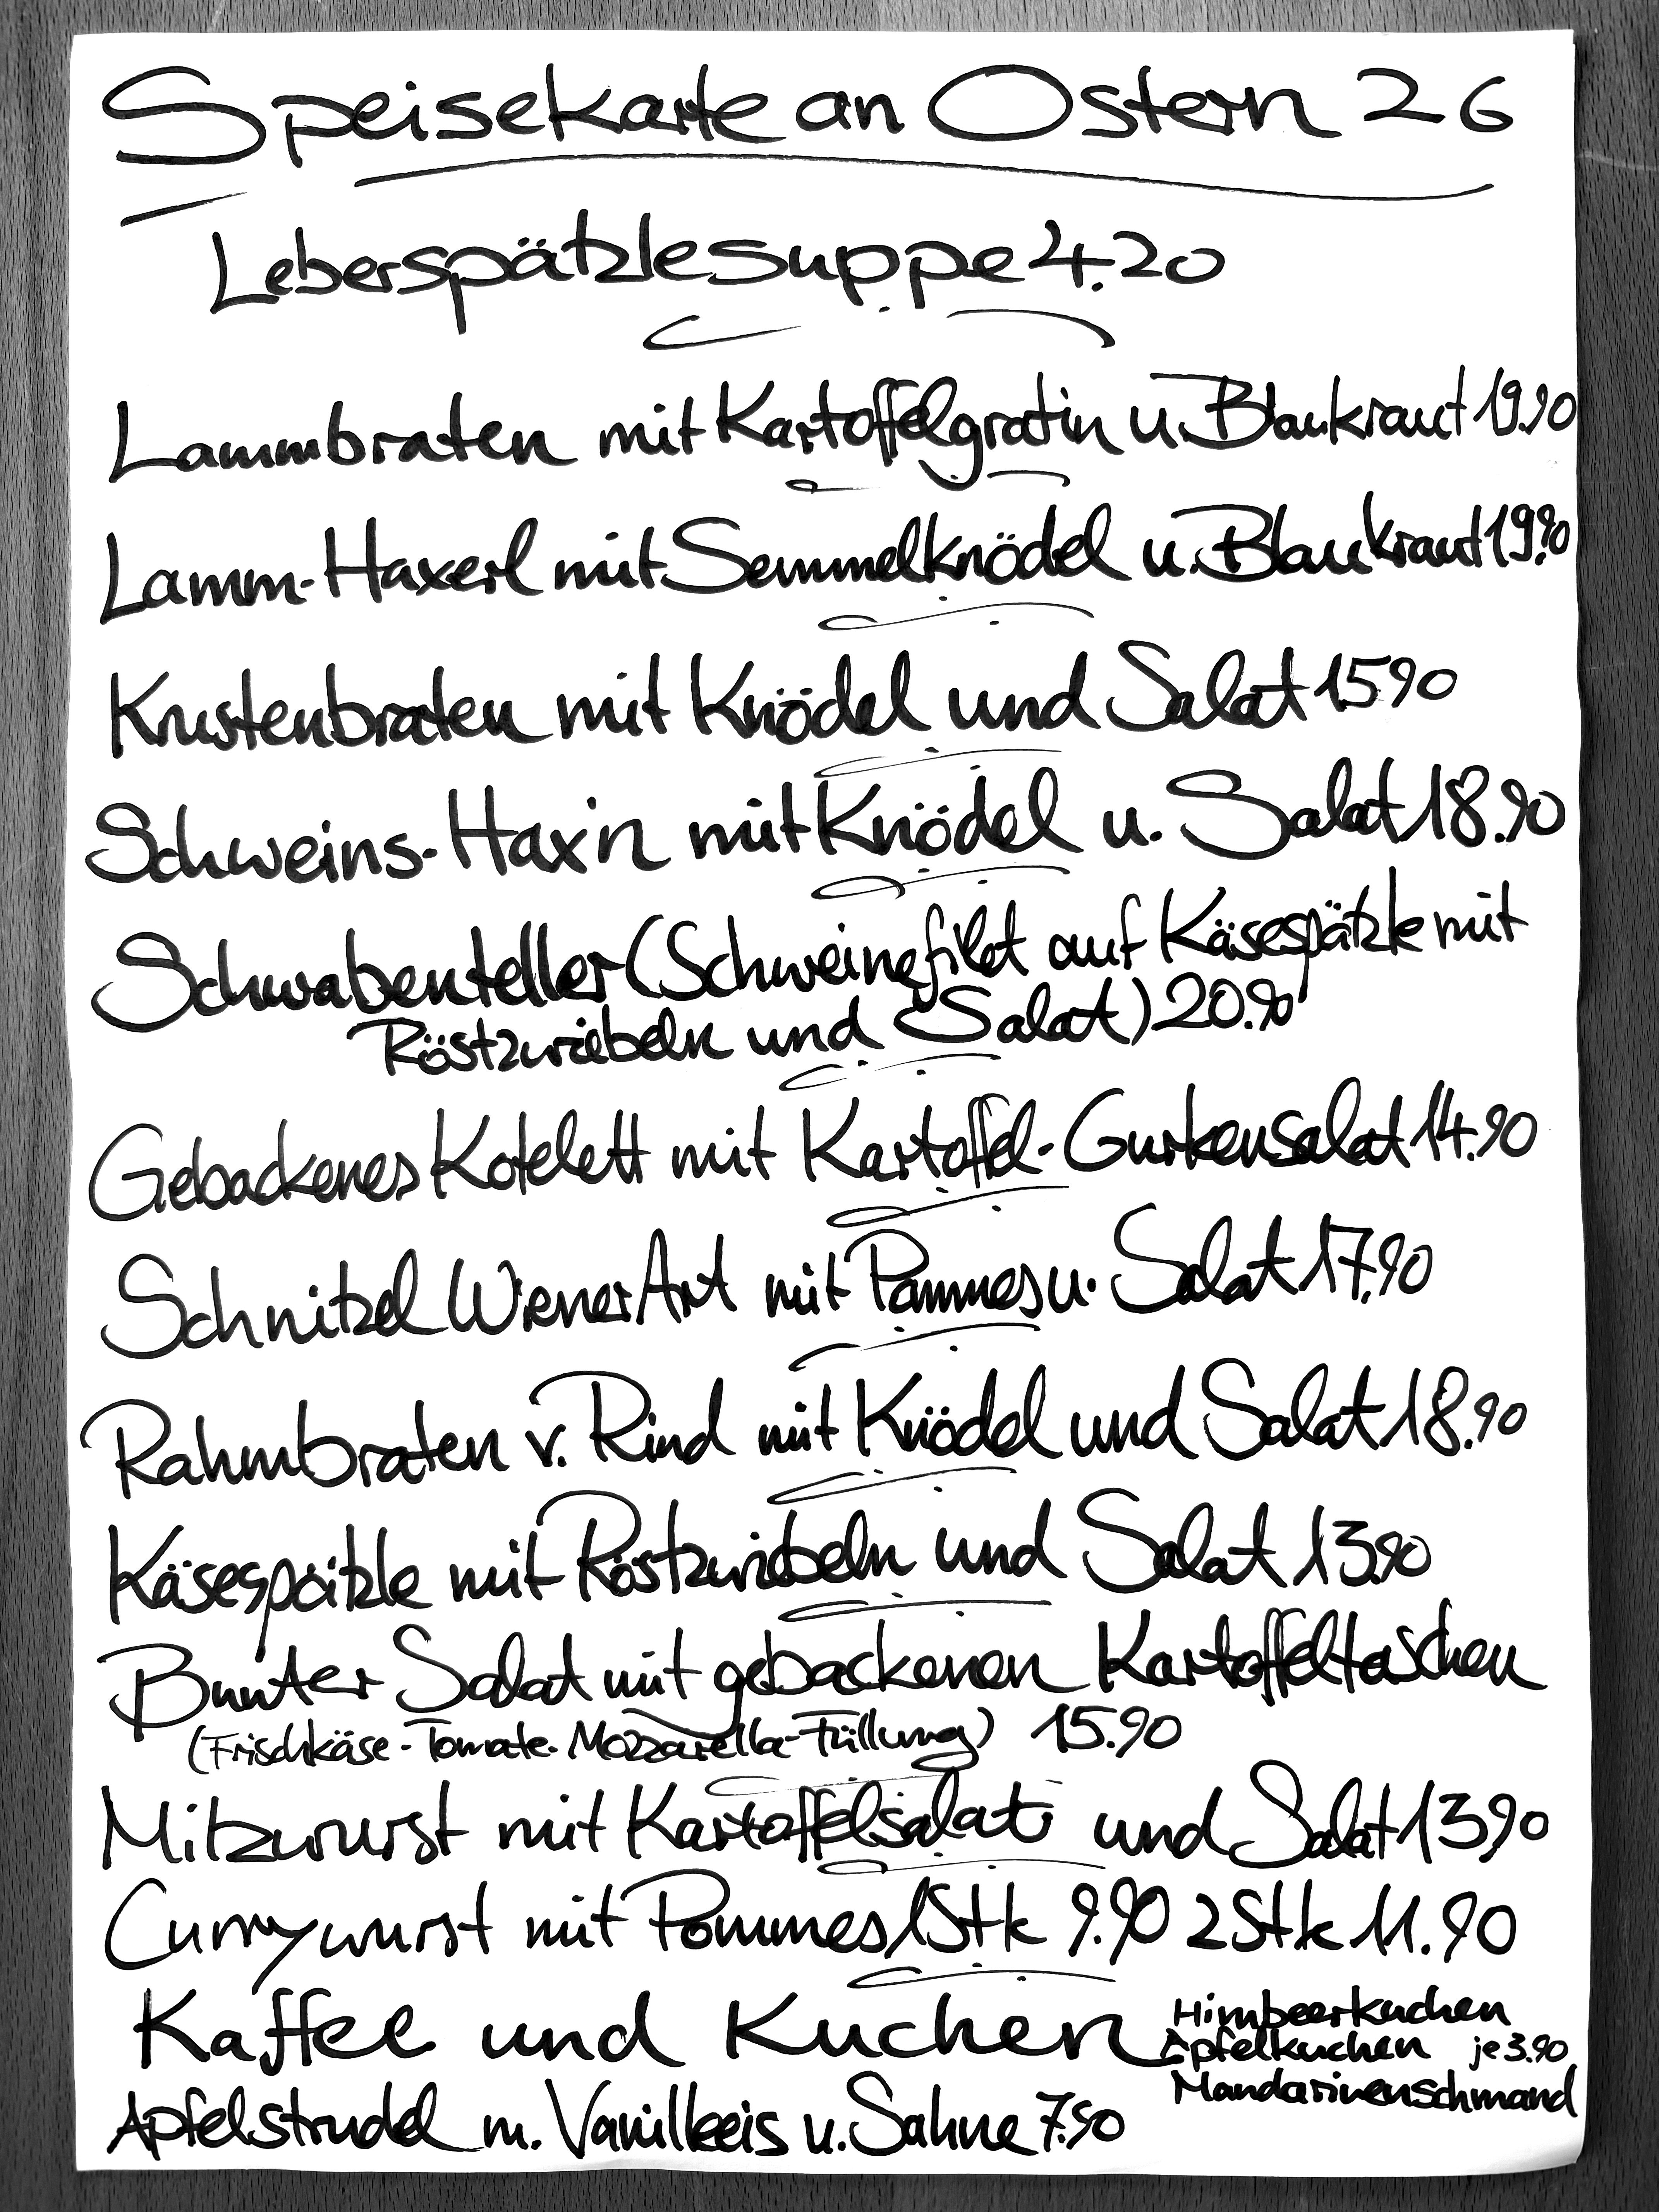 Speisekarte an Ostern 26
Leberspätzlesuppe 4.20
Lammbraten mit Kartoffelgratin u. Blaukraut 19.90
Lamm-Haxerl mit Semmelknödel u. Blaukraut 19.90
Krustenbraten mit Knödel und Salat 15.90
Schweins-Hax'n mit Knödel u. Salat 18.90
Schwabenteller (Schweinefilet auf Käsespätzle mit
Röstzwiebeln und Salat) 20.90
Gebackenes Kotelett mit Kartoffel-Gurkensalat 14.90
Schnitzel Wiener Art mit Pommes u. Salat 17.90
Rahmbraten v. Rind mit Knödel und Salat 18.90
Käsespätzle mit Röstzwiebeln und Salat 13.90
Bunter Salat mit gebackenen Kartoffeltaschen
(Frischkäse-Tomate-Mozzarella-Füllung) 15.90
Milzwurst mit Kartoffelsalat und Salat 13.90
Currywurst mit Pommes 1Stk 9.90 2Stk 11.90
Kaffee und Kuchen
Himbeerkuchen
Apfelkuchen je 3.90
Mandarinenschmand
Apfelstrudel m. Vanilleeis u. Sahne 7.50